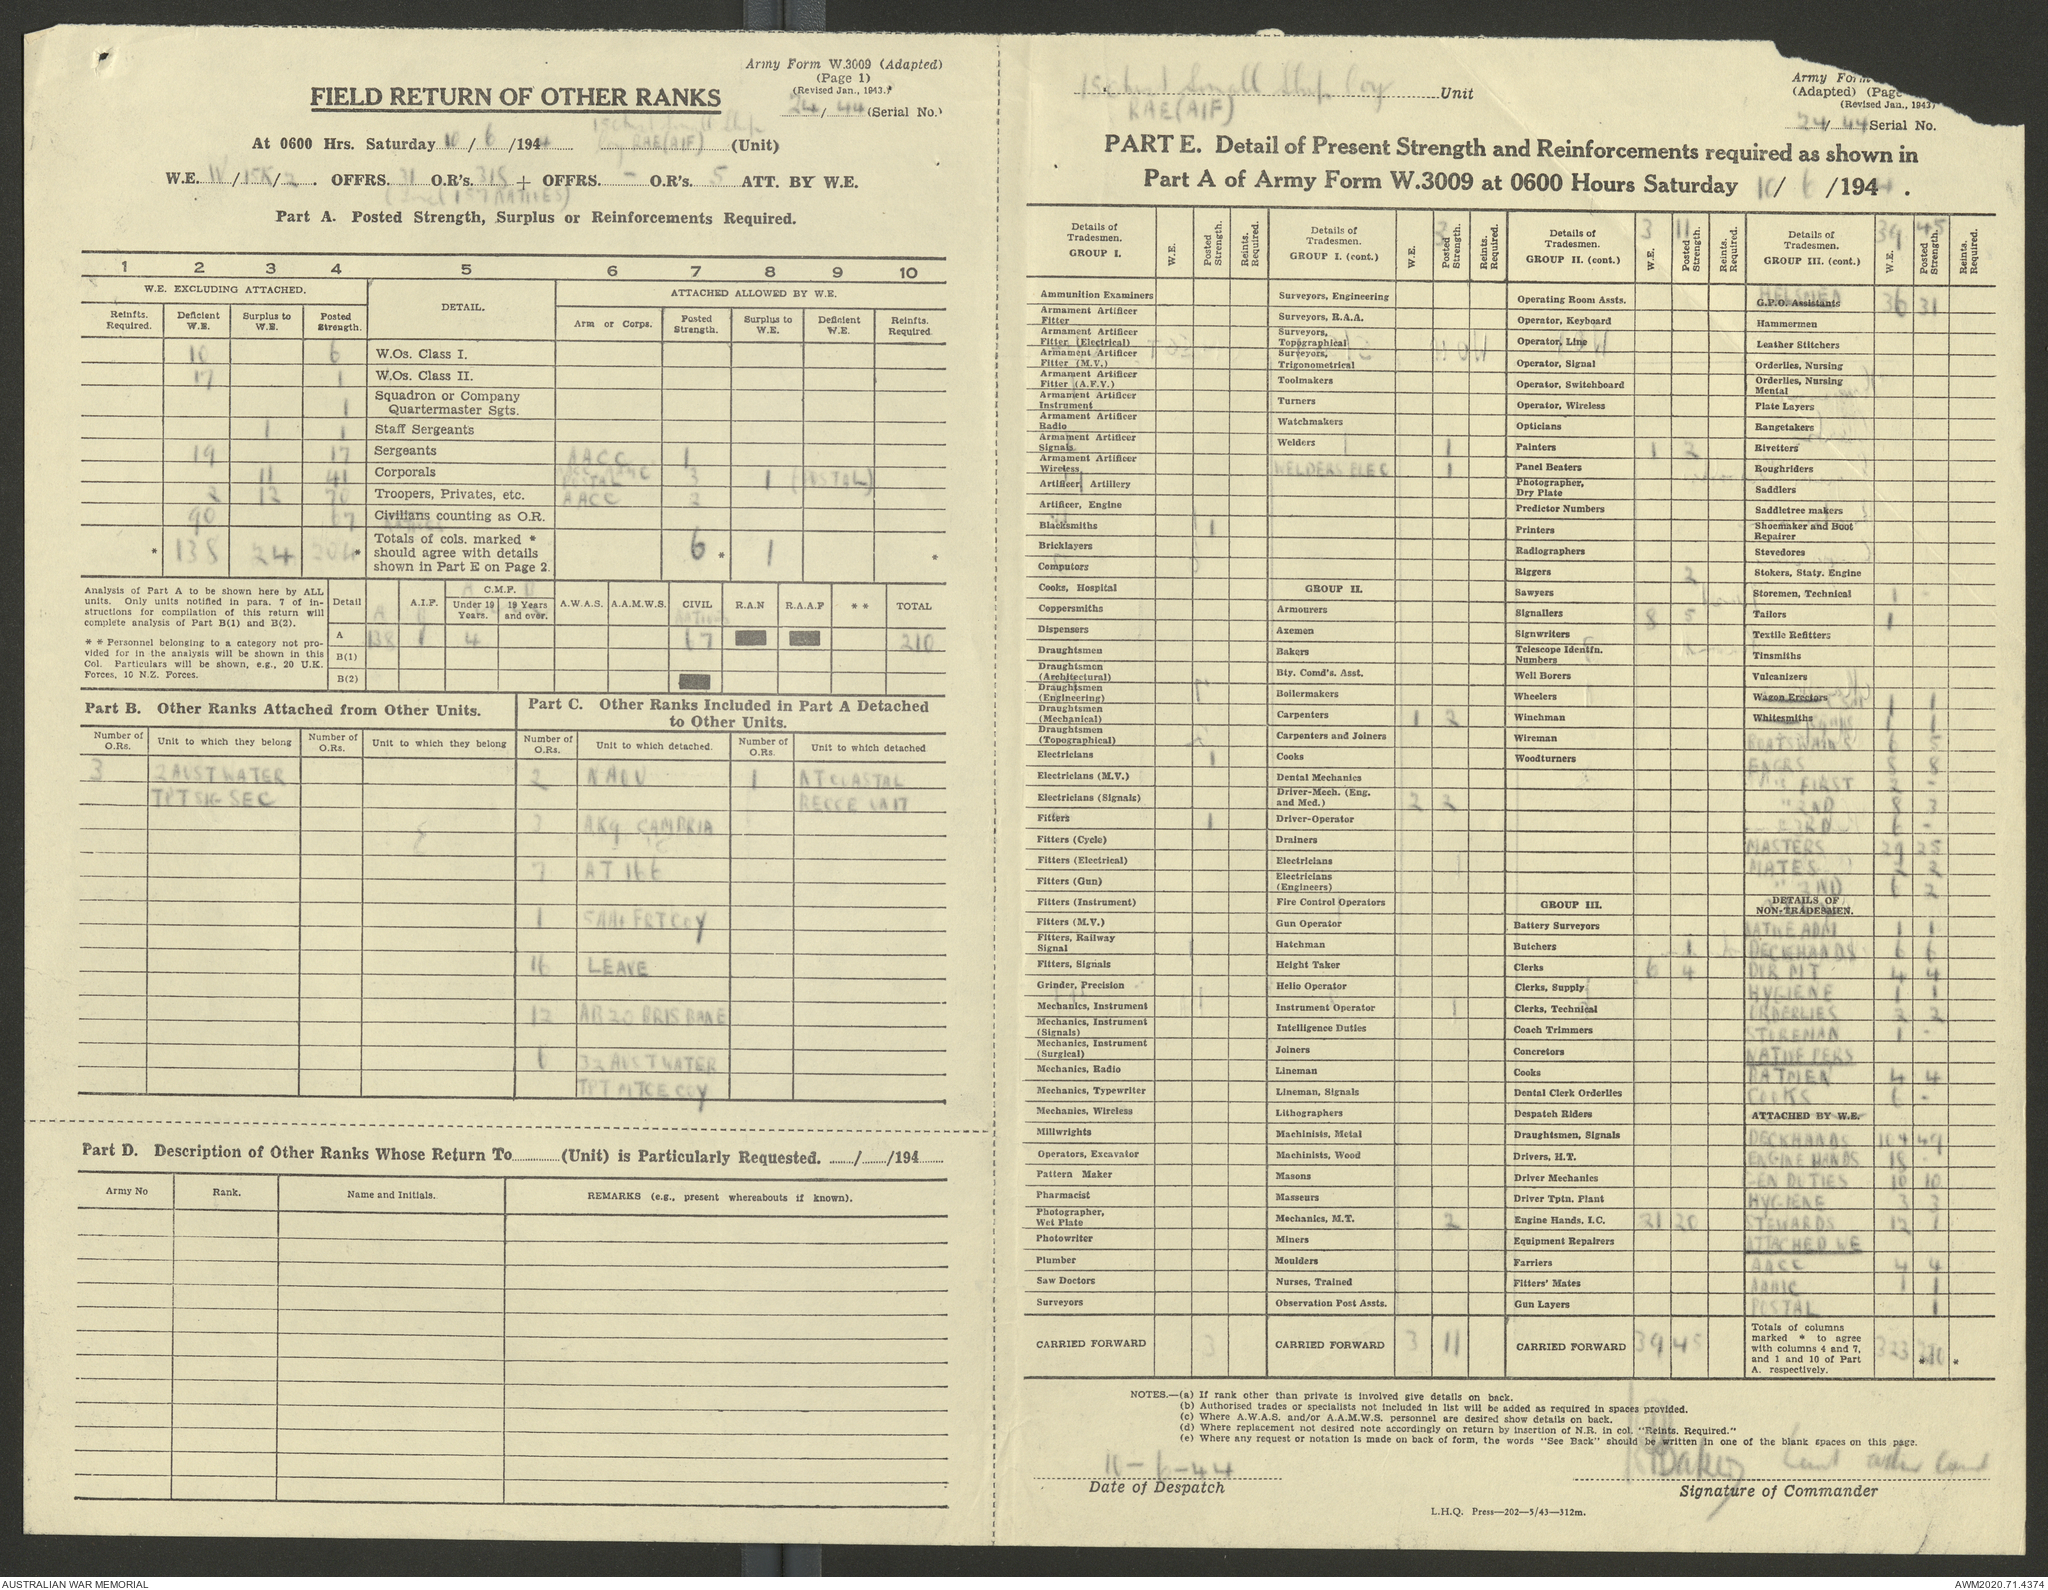 Army Form W.3009 (Adapted)
(Page 1)
(Revised Jan., 1943.)
FIELD RETURN OF OTHER RANKS
24/44 (Serial No.)
At 0600 Hrs. Saturday 10/6/1944 RAE (AIF) (Unit)
W.E. /15K/2. OFFRS. 31 O.R's. 315 + OFFRS. - O.R's. 5 ATT. BY W.E.
(Incl 157 NATIVES)
Part A. Posted Strength, Surplus or Reinforcements Required.
1 2 3 4 5 6 7 8 9 10
W.E. EXCLUDING ATTACHED. DETAIL. ATTACHED ALLOWED BY W.E.
Reinfts. Required. Deficient W.E. Surplus to W.E. Posted Strength. Arm or Corps. Posted Strength. Surplus to W.E. Deficient W.E. Reinfts. Required.
10 6 W.Os. Class I.
17 1 W.Os. Class II.
1 Squadron or Company Quartermaster Sgts.
1 1 Staff Sergeants
19 17 Sergeants AACC 1
11 41 Corporals POSTAL 3 1 (POSTAL)
2 12 70 Troopers, Privates, etc. AACC 2
90 67 Civilians counting as O.R.
NATIVES
* 135 24 204* Totals of cols. marked * should agree with details shown in Part E on Page 2. 6* 1 *
Analysis of Part A to be shown here by ALL units. Only units notified in para. 7 of instructions for compilation of this return will complete analysis of Part B(1) and B(2).
** Personnel belonging to a category not provided for in the analysis will be shown in this Col. Particulars will be shown, e.g., 20 U.K. Forces, 10 N.Z. Forces.
Detail A.I.F. C.M.F. Under 19 Years. 19 Years and over. A.W.A.S. A.A.M.W.S. CIVIL R.A.N R.A.A.F ** TOTAL
NATIVES
A 138 1 4 67 210
B(1)
B(2)
Part B. Other Ranks Attached from Other Units.
Number of O.Rs. Unit to which they belong Number of O.Rs. Unit to which they belong
3 2 AUST WATER
TPT SIG SEC
Part C. Other Ranks Included in Part A Detached to Other Units.
Number of O.Rs. Unit to which detached. Number of O.Rs. Unit to which detached
2 NAOU 1 NT COASTAL
RECCE UNIT
3 AK9 CAMBRIA
7 AT 166
1 FRT COY
16 LEAVE
12 AB20 BRISBANE
6 32 AUST WATER
TPT MTCE COY
Part D. Description of Other Ranks Whose Return To (Unit) is Particularly Requested. / /194
Army No Rank. Name and Initials. REMARKS (e.g., present whereabouts if known).
15 Aust Small Ship Coy Unit
RAE (AIF)
Army Form
(Adapted) (Page
(Revised Jan., 1943)
24/44 Serial No.
PART E. Detail of Present Strength and Reinforcements required as shown in
Part A of Army Form W.3009 at 0600 Hours Saturday 10/6/1944.
Details of Tradesmen. GROUP I. W.E. Posted Strength. Reints. Required.
Ammunition Examiners
Armament Artificer Fitter
Armament Artificer Fitter (Electrical)
Armament Artificer Fitter (M.V.)
Armament Artificer Fitter (A.F.V.)
Armament Artificer Instrument
Armament Artificer Radio
Armament Artificer Signals
Armament Artificer Wireless
Artificer, Artillery
Artificer, Engine
Blacksmiths 1
Bricklayers
Computors
Cooks, Hospital
Coppersmiths
Dispensers
Draughtsmen
Draughtsmen (Architectural)
Draughtsmen (Engineering)
Draughtsmen (Mechanical)
Draughtsmen (Topographical)
Electricians 1
Electricians (M.V.)
Electricians (Signals)
Fitters 1
Fitters (Cycle)
Fitters (Electrical)
Fitters (Gun)
Fitters (Instrument)
Fitters (M.V.)
Fitters, Railway Signal
Fitters, Signals
Grinder, Precision
Mechanics, Instrument
Mechanics, Instrument (Signals)
Mechanics, Instrument (Surgical)
Mechanics, Radio
Mechanics, Typewriter
Mechanics, Wireless
Millwrights
Operators, Excavator
Pattern Maker
Pharmacist
Photographer, Wet Plate
Photowriter
Plumber
Saw Doctors
Surveyors
CARRIED FORWARD 3
Details of Tradesmen. GROUP I. (cont.) W.E. Posted Strength. Reints. Required.
3
Surveyors, Engineering
Surveyors, R.A.A.
Surveyors, Topographical
Surveyors, Trigonometrical
Toolmakers
Turners
Watchmakers
Welders 1
WELDERS ELEC 1
GROUP II.
Armourers
Axemen
Bakers
Bty. Comd's. Asst.
Boilermakers
Carpenters 1 2
Carpenters and Joiners
Cooks
Dental Mechanics
Driver-Mech. (Eng. and Med.) 2 2
Driver-Operator
Drainers
Electricians
Electricians (Engineers)
Fire Control Operators
Gun Operator
Hatchman
Height Taker
Helio Operator
Instrument Operator
Intelligence Duties
Joiners
Lineman
Lineman, Signals
Lithographers
Machinists, Metal
Machinists, Wood
Masons
Masseurs
Mechanics, M.T. 2
Miners
Moulders
Nurses, Trained
Observation Post Assts.
CARRIED FORWARD 3 11
Details of Tradesmen. GROUP II. (cont.) W.E. Posted Strength. Reints. Required.
3 11
Operating Room Assts.
Operator, Keyboard
Operator, Line
Operator, Signal
Operator, Switchboard
Operator, Wireless
Opticians
Painters 1 2
Panel Beaters
Photographer, Dry Plate
Predictor Numbers
Printers
Radiographers
Riggers 2
Sawyers
Signallers 8 5
Signwriters
Telescope Identfn. Numbers
Well Borers
Wheelers
Winchman
Wireman
Woodturners
GROUP III.
Battery Surveyors
Butchers - 1
Clerks 6 4
Clerks, Supply
Clerks, Technical
Coach Trimmers
Concretors
Cooks
Dental Clerk Orderlies
Despatch Riders
Draughtsmen, Signals
Drivers, H.T.
Driver Mechanics
Driver Tptn. Plant
Engine Hands, I.C. 21 20
Equipment Repairers
Farriers
Fitters' Mates
Gun Layers
CARRIED FORWARD 39 45
Details of Tradesmen. GROUP III. (cont.) W.E. Posted Strength. Reints. Required.
39 45
HELSMEN 36 31
G.P.O. Assistants
Hammermen
Leather Stitchers
Orderlies, Nursing
Orderlies, Nursing Mental
Plate Layers
Rangetakers
Rivetters
Roughriders
Saddlers
Saddletree makers
Shoemaker and Boot Repairer
Stevedores
Stokers, Staty. Engine
Storemen, Technical 1 -
Tailors 1
Textile Refitters
Tinsmiths
Vulcanizers
Wagon Erectors 1 1
Whitesmiths 1 1
BOATSWAINS 6 5
ENGRS 8 8
" FIRST 2 -
" 2ND 8 3
" 3RD 6 -
MASTERS 29 25
MATES 2 2
" 2ND 6 2
DETAILS OF NON-TRADESMEN.
NATIVE ADM 1 1
DECKHANDS 6 6
DVR MT 4 4
HYGIENE 1 1
ORDERLIES 2 2
STOREMAN 1 -
NATIVE PERS
BATMEN 4 4
COOKS 6 -
ATTACHED BY W.E.
DECKHANDS 104 49
ENGINE HANDS 18 -
GEN DUTIES 10 10
HYGIENE 3 3
STEWARDS 12 1
ATTACHED WE
AACC 4 4
AAMC 1 1
POSTAL 1
Totals of columns marked * to agree with columns 4 and 7, and 1 and 10 of Part A. respectively. 323 *210 *
NOTES.—(a) If rank other than private is involved give details on back.
(b) Authorised trades or specialists not included in list will be added as required in spaces provided.
(c) Where A.W.A.S. and/or A.A.M.W.S. personnel are desired show details on back.
(d) Where replacement not desired note accordingly on return by insertion of N.R. in col. "Reints. Required."
(e) Where any request or notation is made on back of form, the words "See Back" should be written in one of the blank spaces on this page.
10-6-44
Date of Despatch
Baker Lieut
Signature of Commander
L.H.Q. Press—202—5/43—312m.
AUSTRALIAN WAR MEMORIAL
AWM2020.71.4374